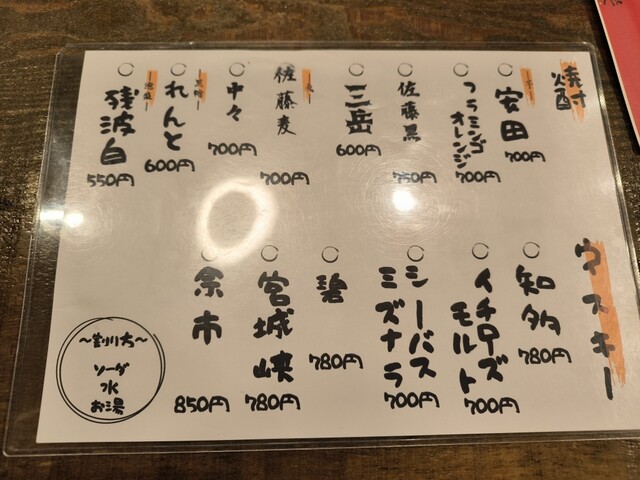 焼酎
芋
安田
700円
フラミンゴ
オレンジ
700円
佐藤黒
750円
三岳
600円
麦
佐藤麦
700円
中々
700円
黒糖
れんと
600円
泡盛
残波白
550円
ウスキー
知多
780円
イチローズ
モルト
700円
シーバス
ミズナラ
700円
碧
780円
宮城峡
780円
余市
850円
〜割り方〜
ソーダ
水
お湯